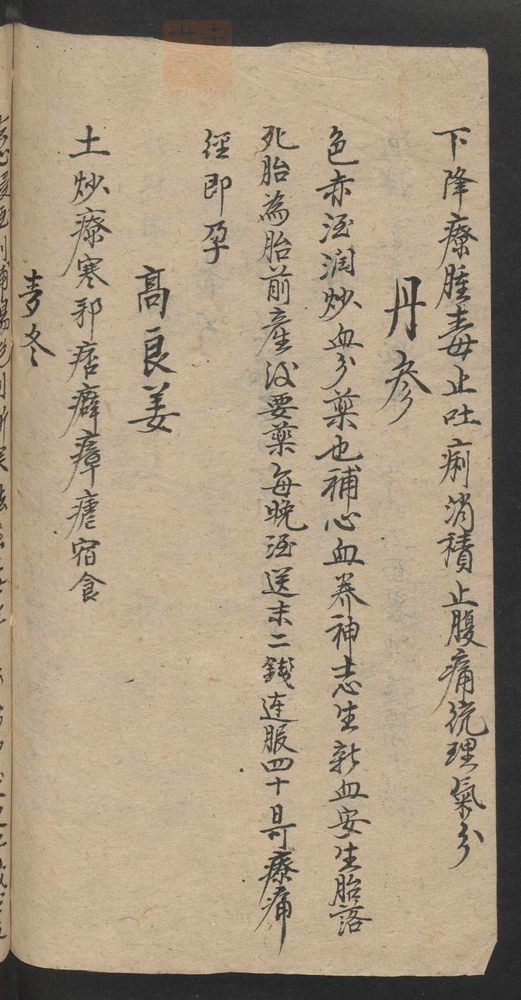 下降療腫毒止吐痢消積止腹痛統理氣分
丹參
色赤酒润炒血分藥也補心血养神志生新血安生胎落
死胎為胎前產後要藥每晚酒送末二錢連服四十日可療痛
徑即孕
高良姜
土炒療寒邪痞癖瘴瘧宿食
麦冬